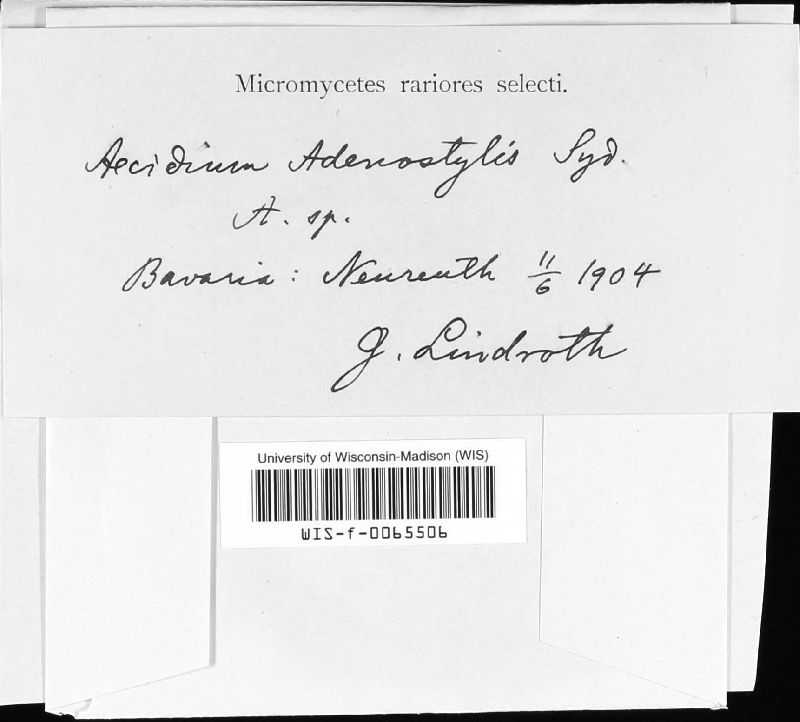 Micromycetes rariores selecti.
Aecidium Adenostylis Syd.
A. sp.
Bavaria: Neureuth 11/6 1904
J. Lindroth
University of Wisconsin-Madison (WIS)
WIS-f-0065506